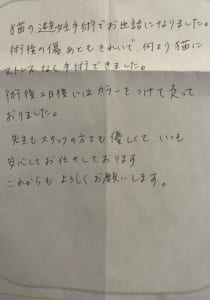 猫の避妊手術でお世話になりました。
術後の傷あともきれいで、何より猫に
ストレスなく手術できました。
術後2日後にはカラーをつけて走って
おりました。
先生もスタッフの方々も優しくて、いつも
安心してお任せしております
これからもよろしくお願いします。